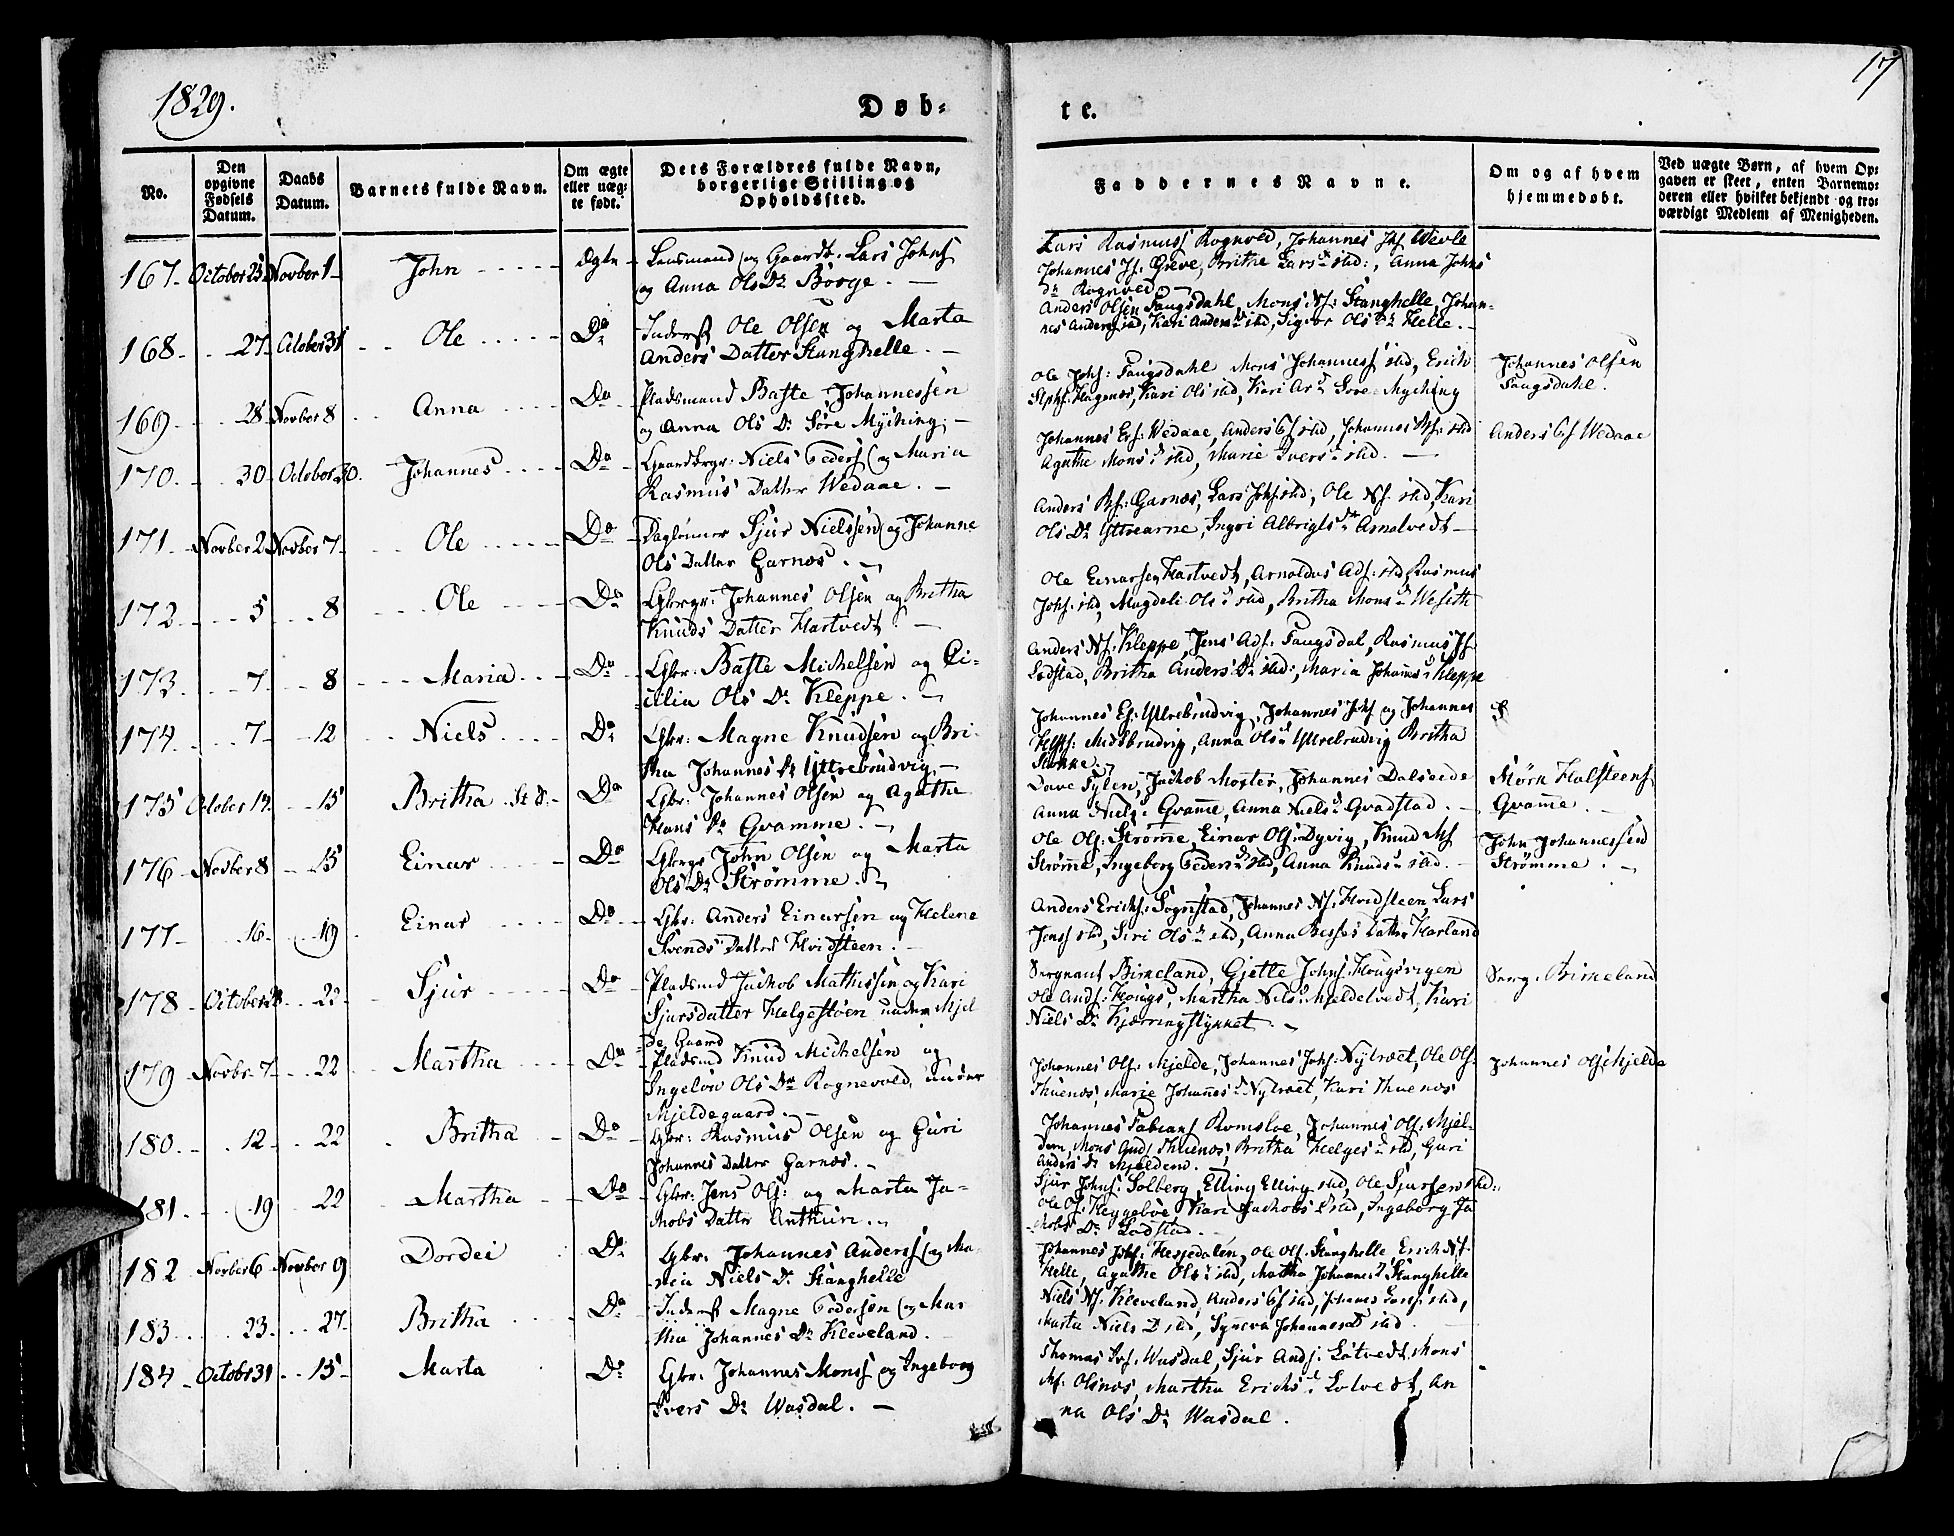 1829.
Døb-
te.
17
No.
Den opgivne Fødsels Datum.
Daabs Datum.
Barnets fulde Navn.
Om ægte eller uægte født.
Dets Forældres fulde Navn, borgerlige Stilling og Opholdssted.
Faddernes Navne.
Om og af hvem hjemmedøbt.
Ved uægte Børn, af hvem Opgaven er skeet, enten Barnemoderen eller hvilket bekjendt og troværdigt Medlem af Menigheden.
167. October 25 Novbor 1 John Ægte Lensmand og Gaardb. Lars Johns
og Anna Ols Dr Børge.
Lars Rasmuss Rognved, Johannes Wevle
Johannes Greve, Brithe Lars Dr ibd:, Anna Johns
Dr Rogneved
168 27 October 31 Ole Do Inderst Ole Olsen og Marta
Anders Datter Stanghelle.
Anders Olsen Faugsdahl, Mons Nf: Stanghelle, Johan-
nes Anders ibd, Kari Anders Dr ibd, Siguor Ols Dr Helle.
169 28 Novbor 8 Anna Do Pladsmand Baste Johannessen
og Anna Ols Dr Søre Myching.
Ole Johs: Faugsdahl Mons Johanness ibd, Erich
Hagenæs, Kari Ols ibd, Kari Søre Myching
Johannes Olsen
Faugsdahl.
170. 30 October 30. Johannes Do Gaardbrgr: Niels Peders og Maria
Rasmus Datter Wedaae.
Johannes Wedaae, Anders ibd, Johannes ibd
Agathe Mons Dr ibd, Marie Ivers Dr ibd.
Anders Wedaae
171 Novber 2 Novbor 7 Ole Do Daglønner Sjur Nielssen og Johanne
Ols Datter Garnæs.
Anders Garnæs, Lars ibd, Ole Nf. ibd, Kari
Ols Dr Yttrearne, Ingri Albrigts Dr Arnatvedt
172 5 8 Ole Do Gbrgr: Johannes Olsen og Britha
Knuds Datter Hartvedt.
Ole Einarsen Hartvedt, Arnoldus ibd, Rasmus
Johs: ibd, Magdeli Ols ibd, Britha Mons Dr
173 7 8 Maria Do Gbr: Baste Michelsen og Ci-
cilia Ols Dr Kleppe.
Anders Nf: Kleppe, Jens Faugsdal, Rasmus
Lodstad, Britha Anders Dr ibd:, Maria Johannes Dr Kleppe
174 7 12 Niels Do Gbr: Magne Knudsen og Bri-
tha Johannes Dr Yttrebrudvig
Johannes Yttrebrudvig, Johannes Johs og Johannes
Midtbrudvig, Anna Ols Dr Yttrebrudvig Britha
175 October 19. 15 Britha Do Gbr: Johannes Olsen og Agathe
Hans Dr Gvamme.
Jackob Moster, Johannes Dalseide
Anna Niels Dr Gvamme, Anna Niels Dr Gvadstad.
Halsteens
Gvamme.
176 Novber 8 15 Einar Do John Olsen og Marta
Ols Dr Strømme.
Ole Ols: Strømme, Einar Ols: Dyvig, Knud
Strømme, Ingeborg Peders Dr ibd, Anna Knuds Dr ibd.
John Johannessen
Strømme.
177 16 19 Einar Do Gbr: Anders Einarsen og Helene
Svends Datter Hvidsteen.
Anders Erichs: Sognstad, Johannes Nf: Hvidsteen, Lars
Jenss ibd, Siri Ols Dr ibd, Anna Besses Datter Harland
178 October 22 Sjur Do Pladsmd Jackob Mathissen og Kari
Sjursdatter Helgestøen under Mjel
de Gaard
Sergeant Birkeland, Gjetle Johns Hougsvigen
Ole Ands: Hougs, Martha Nils Dr Mjeldetvedt, Kari
Niels Dr Kjærringstykket.
Serg: Birkeland
179 Novbr 7 22 Martha Do Pladsmd Knud Michelsen og
Ols Dr Rognevold, under
Mjeldegaard.
Johannes Ols: Mjelde, Johannes Johs: Nytræet, Ole Ols:
Thuenæs, Marie Johannes Dr Nytræet, Kari Thuenæs
Johannes Ols Mjelde
180 12 22 Britha Do Gbr: Rasmus Olsen og Guri
Johannes Datter Garnæs.
Johannes Fabians Romsloe, Johannes Ols: Mjel-
dem, Mons Thuenæs, Britha Helges Dr ibd, Guri
Anders Dr Mjeldem.
181 19 22 Martha Do Gbr: Jens Ols: og Marta Ja-
kobs Datter Anthun.
Sjur Johns: Solberg, Elling Elling ibd, Ole Sjursen ibd:
Ole Heggeløe Kari Jackobs D ibd, Ingeborg Ja
kobs Dr Lodstad.
182 Novber 6 Novbor 9 Dordei Do Gbr: Johannes Anderss og Ma-
ria Niels Dr Stanghelle
Johannes Johs: Hesjedalen, Ole Ols: Stanghelle Erich Nf.
Helle, Agathe Ols Dr ibd, Martha Johannes Dr Stanghelle
183 23. 27 Britha Do Inderst Magne Pedersen og Mar
tha Johannes Dr Kleveland.
Niels Nf. Kleveland, Anders ibd, Johannes Larss ibd,
Marta Niels D ibd, Synneva Johannes D ibd.
184 October 31 15 Marta Do Gbr: Johannes Monss og Ingeborg
Ivers Dr Wasdal.
Thomas Wasdal, Sjur Ands: Løtvedt, Mons
Olsnæs, Martha Erichs Dr Løtvedt, An
na Ols Dr Wasdal.